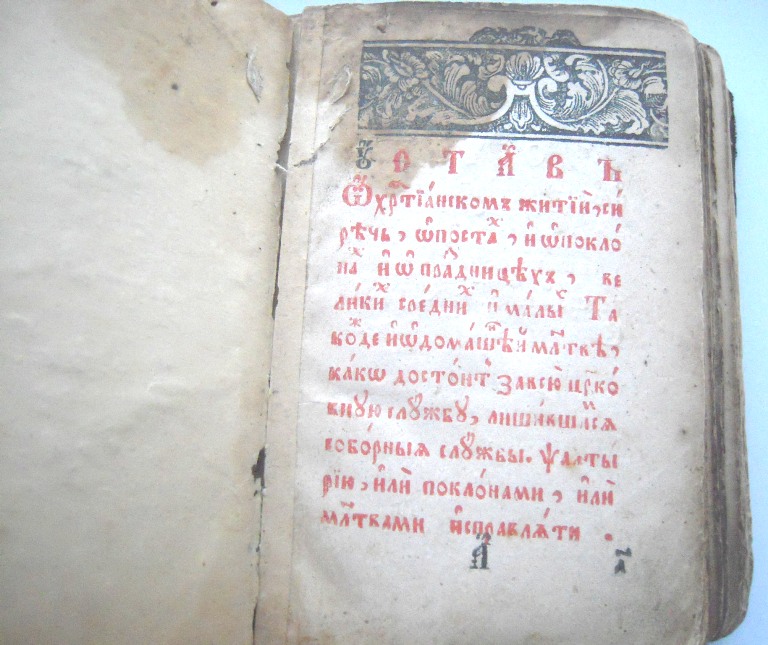 Ꙋ҆СТА́ВЪ
Ѡ҆ хрⷭ҇тїа́нскомъ житїи҆, си́
рѣчь, ѡ҆ поста́ⷯ, и҆ ѡ҆ покло́
наⷯ и҆ ѡ҆ пра́ⷥдницѣхъ, ве
ли́киⷯ сре́дниⷯ и҆ ма́лыⷯ. Та
ко́ⷤде и҆ ѡ҆ дома́шнеи҆ млⷮвѣ,
ка́кѡ досто́итъ за всю̀ цр҃ко́
вную слꙋ́жбꙋ, лиши́вшимсѧ
собо́рныѧ слꙋ́жбы. ѱалты́
рїю, и҆лѝ покло́нами, и҆лѝ
млⷮвами и҆справлѧ́ти .
а҃